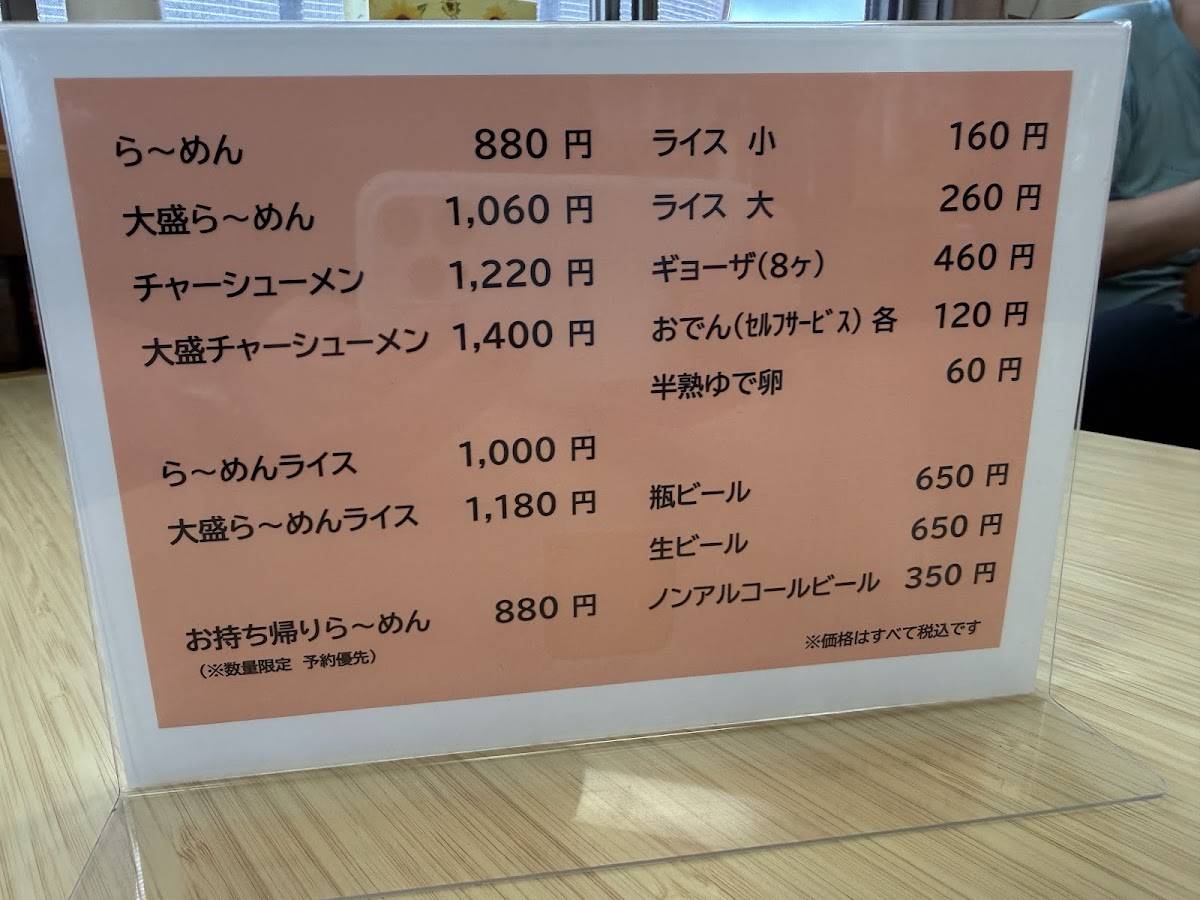 ら～めん 880 円
大盛ら～めん 1,060 円
チャーシューメン 1,220 円
大盛チャーシューメン 1,400 円
ら～めんライス 1,000 円
大盛ら～めんライス 1,180 円
お持ち帰りら～めん 880 円
(※数量限定 予約優先)
ライス 小 160 円
ライス 大 260 円
ギョーザ(8ヶ) 460 円
おでん(ｾﾙﾌｻｰﾋﾞｽ) 各 120 円
半熟ゆで卵 60 円
瓶ビール 650 円
生ビール 650 円
ノンアルコールビール 350 円
※価格はすべて税込です